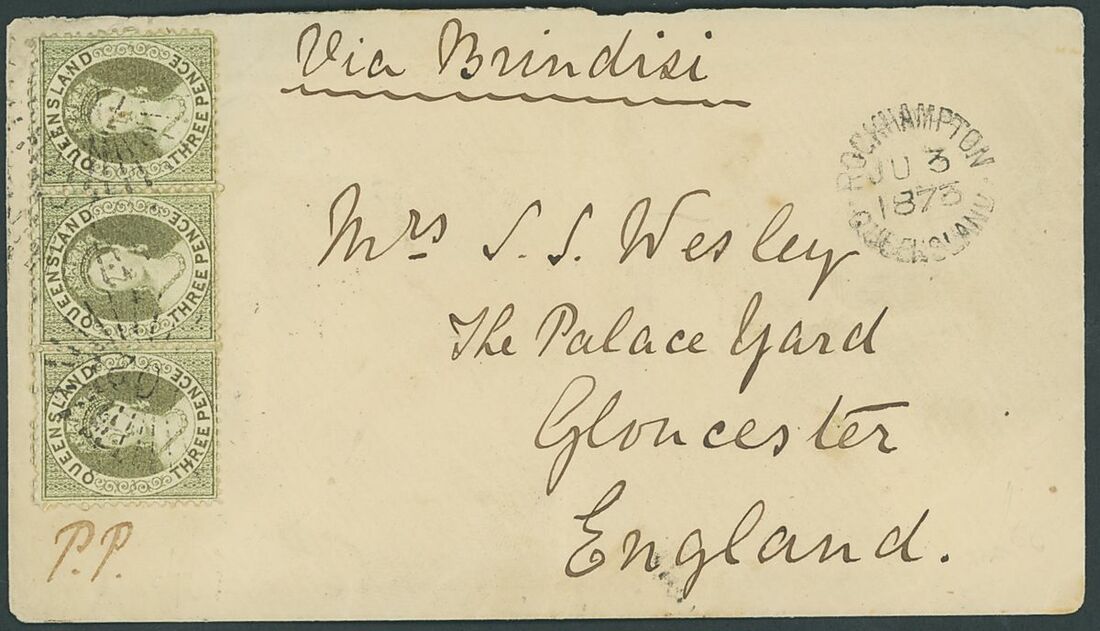 Via Brindisi
ROCKHAMPTON
JU 3
1873
QUEENSLAND
Mrs S. S. Wesley
The Palace Yard
Gloucester
England.
QUEENSLAND
THREE PENCE
QUEENSLAND
THREE PENCE
QUEENSLAND
THREE PENCE
P.P.